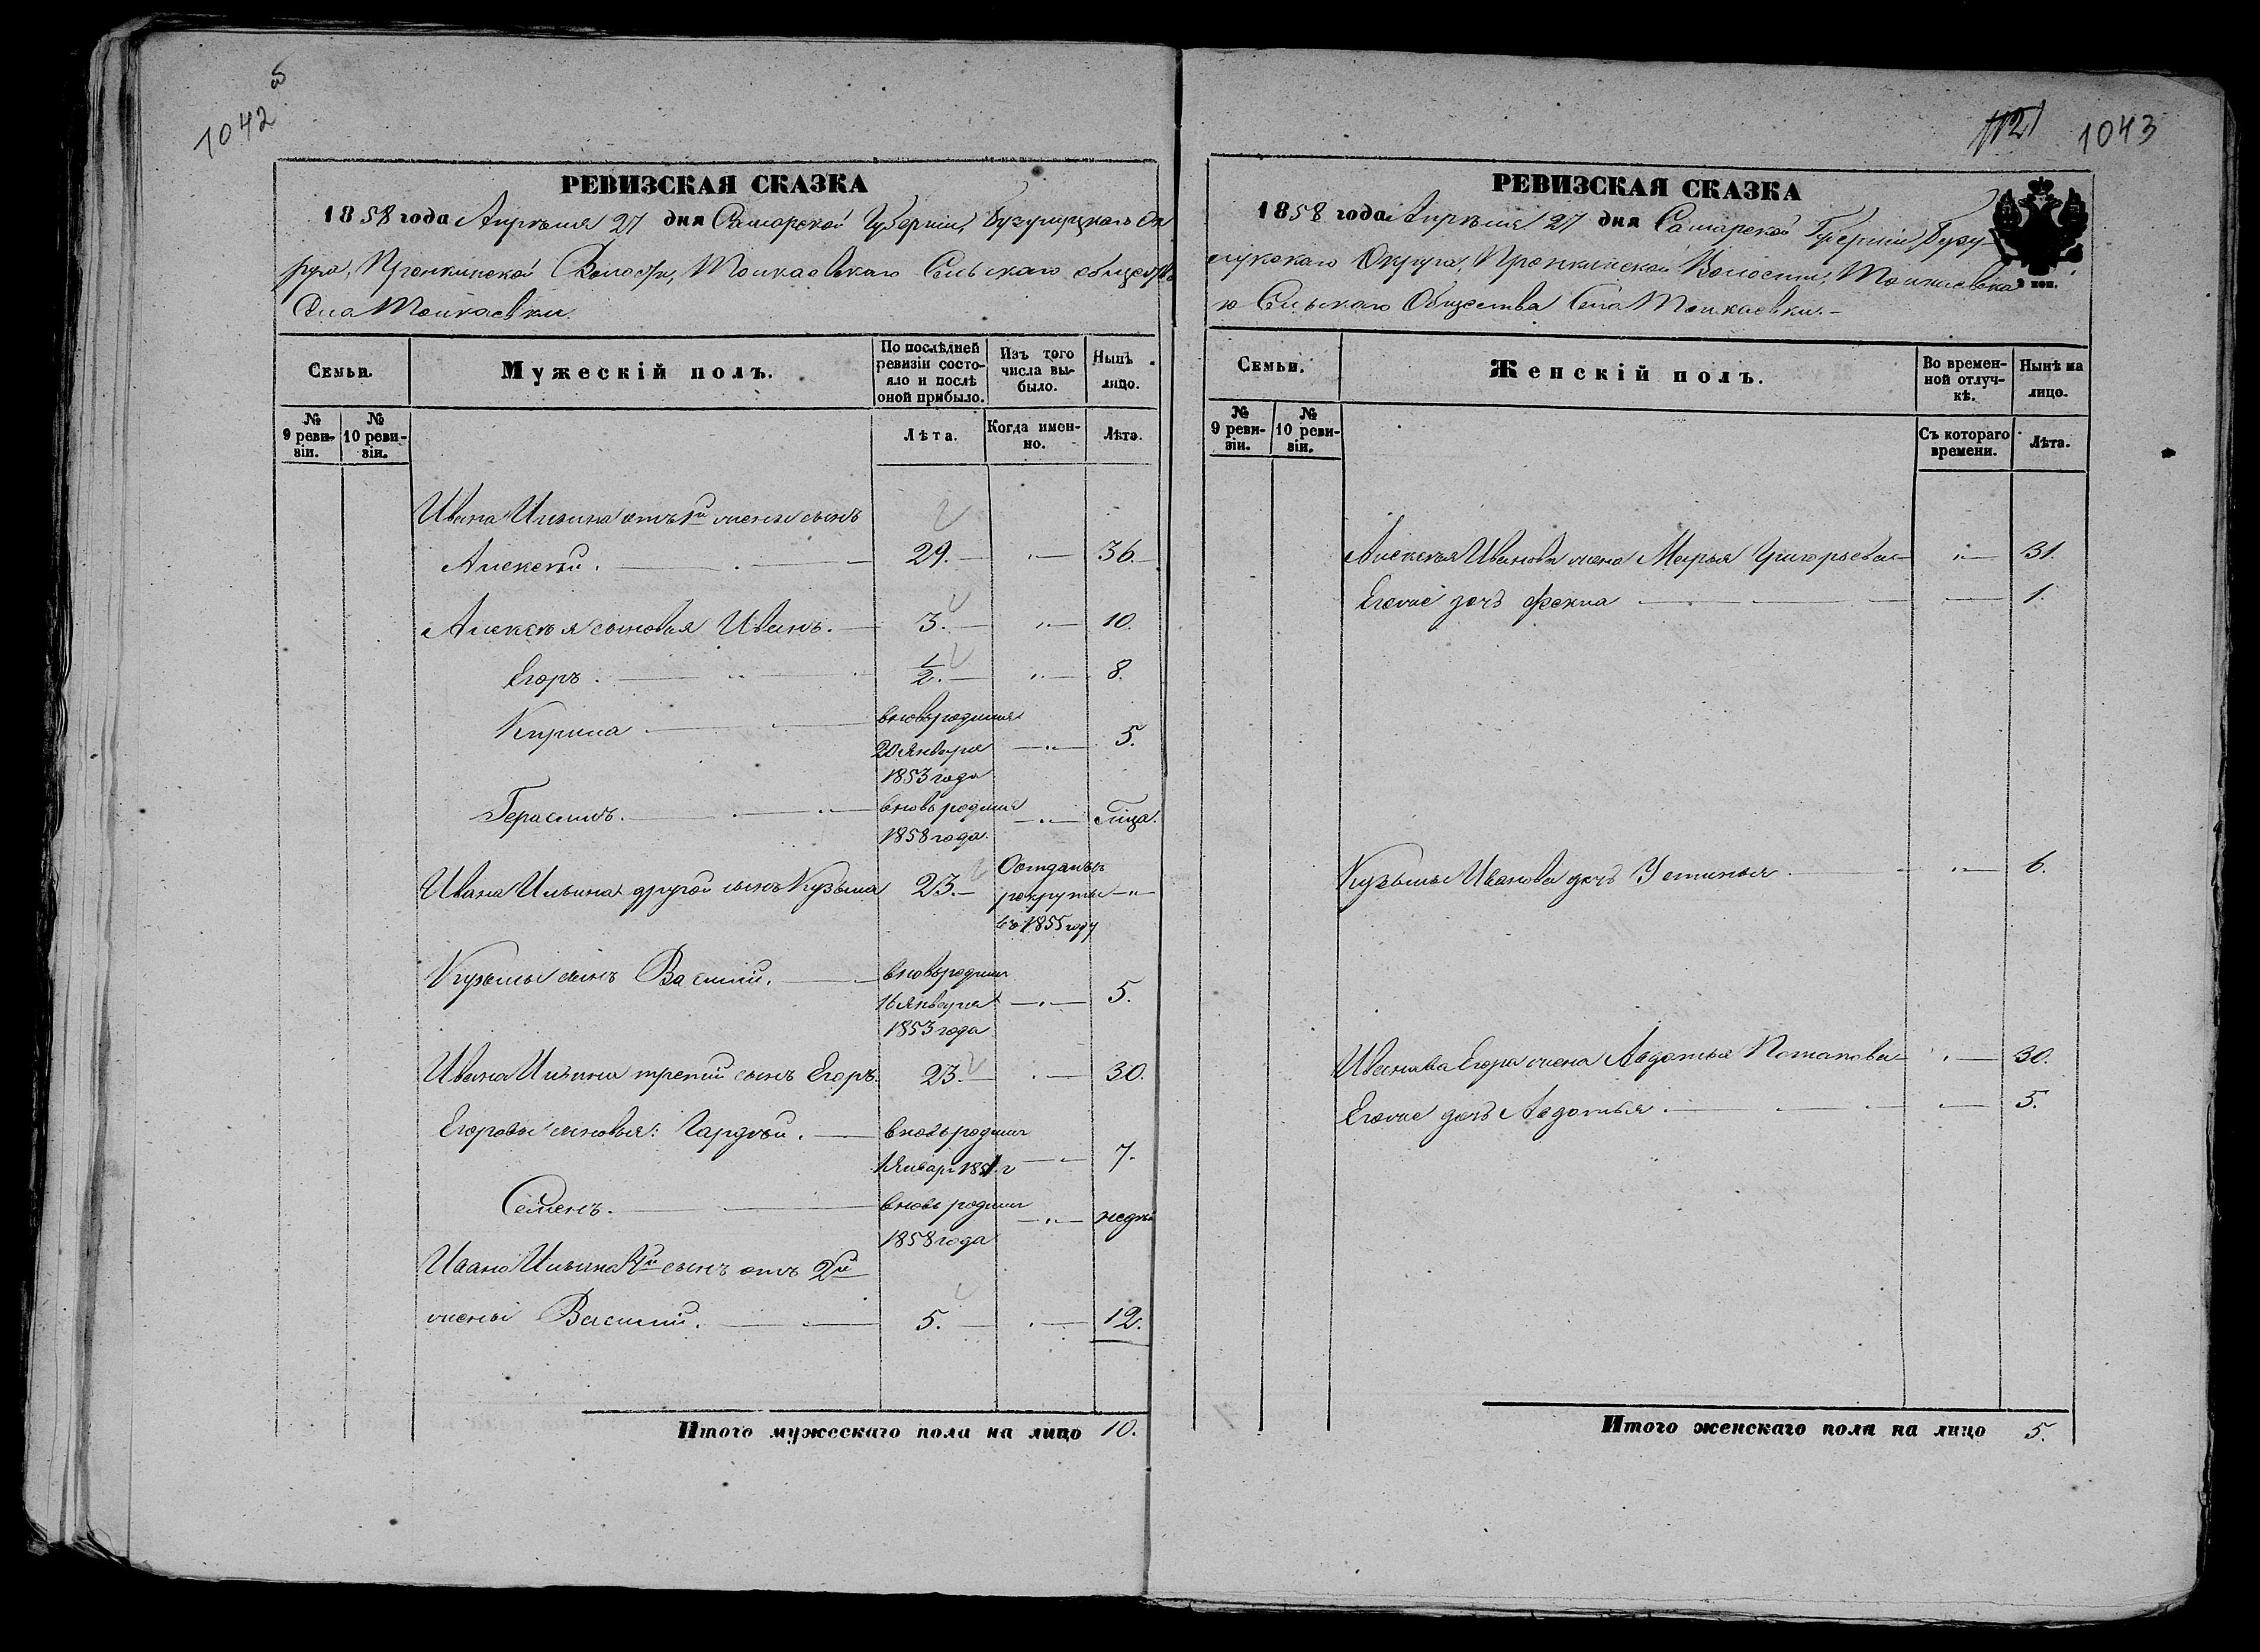 1042
об
РЕВИЗСКАЯ СКАЗКА
1858 года Апрѣля 27 дня Самарской Губерніи, Бузулуцкаго Ок
руга, Пронкинской Волости, Тоикаевскаго Сельскаго обществ
Села Тоикаевки.
Семьи.
Мужескій полъ.
По послѣдней ревизіи состояло и послѣ оной прибыло.
Изъ того числа выбыло.
Нынѣ лицо.
№ 9 ревизіи.
№ 10 ревизіи.
Лѣта.
Когда именно.
Лѣта.
Ивана Ильина отъ 1й жены сынъ
Алексѣй. 29. 36.
Алексѣя сыновья Иванъ. 3. 10.
Егоръ. 1/2. 8.
Кирила вновь родился 5.
20 Января
1853 года
Герасимъ. вновь родился
1858 года.
Ивана Ильина другой сынъ Кузьма 23. Отданъ въ
рекруты
въ 1855 году
Кузьмы сынъ Василій. вновь родился
16 Января 5.
1853 года
Ивана Ильина третій сынъ Егоръ. 23. 30.
Егоровы сыновья: Гардѣй. вновь родился
1 Января 1851 г 7.
Семенъ. вновь родился недѣл
1858 года
Ивана Ильина 4й сынъ отъ 2й
жены Василій. 5. 12.
Итого мужескаго пола на лицо 10.
1121 1043
РЕВИЗСКАЯ СКАЗКА
1858 года Апрѣля 27 дня Самарской Губерніи Бузу
лукскаго Округа, Пронкинской Волости, Тоикаевска
го Сельскаго Общества Села Тоикаевки.
2 коп.
Семьи.
Женскій полъ.
Во временной отлучкѣ.
Нынѣ на лицо.
№ 9 ревизіи.
№ 10 ревизіи.
Съ котораго времени.
Лѣта.
Алексѣя Иванова жена Марья Григорьева 31.
Егоже дочь Фекла 1.
Кузьмы Иванова дочь Устинья 6.
Иванова Егора жена Авдотья Потапова 30.
Егоже дочь Авдотья. 5.
Итого женскаго пола на лицо 5.